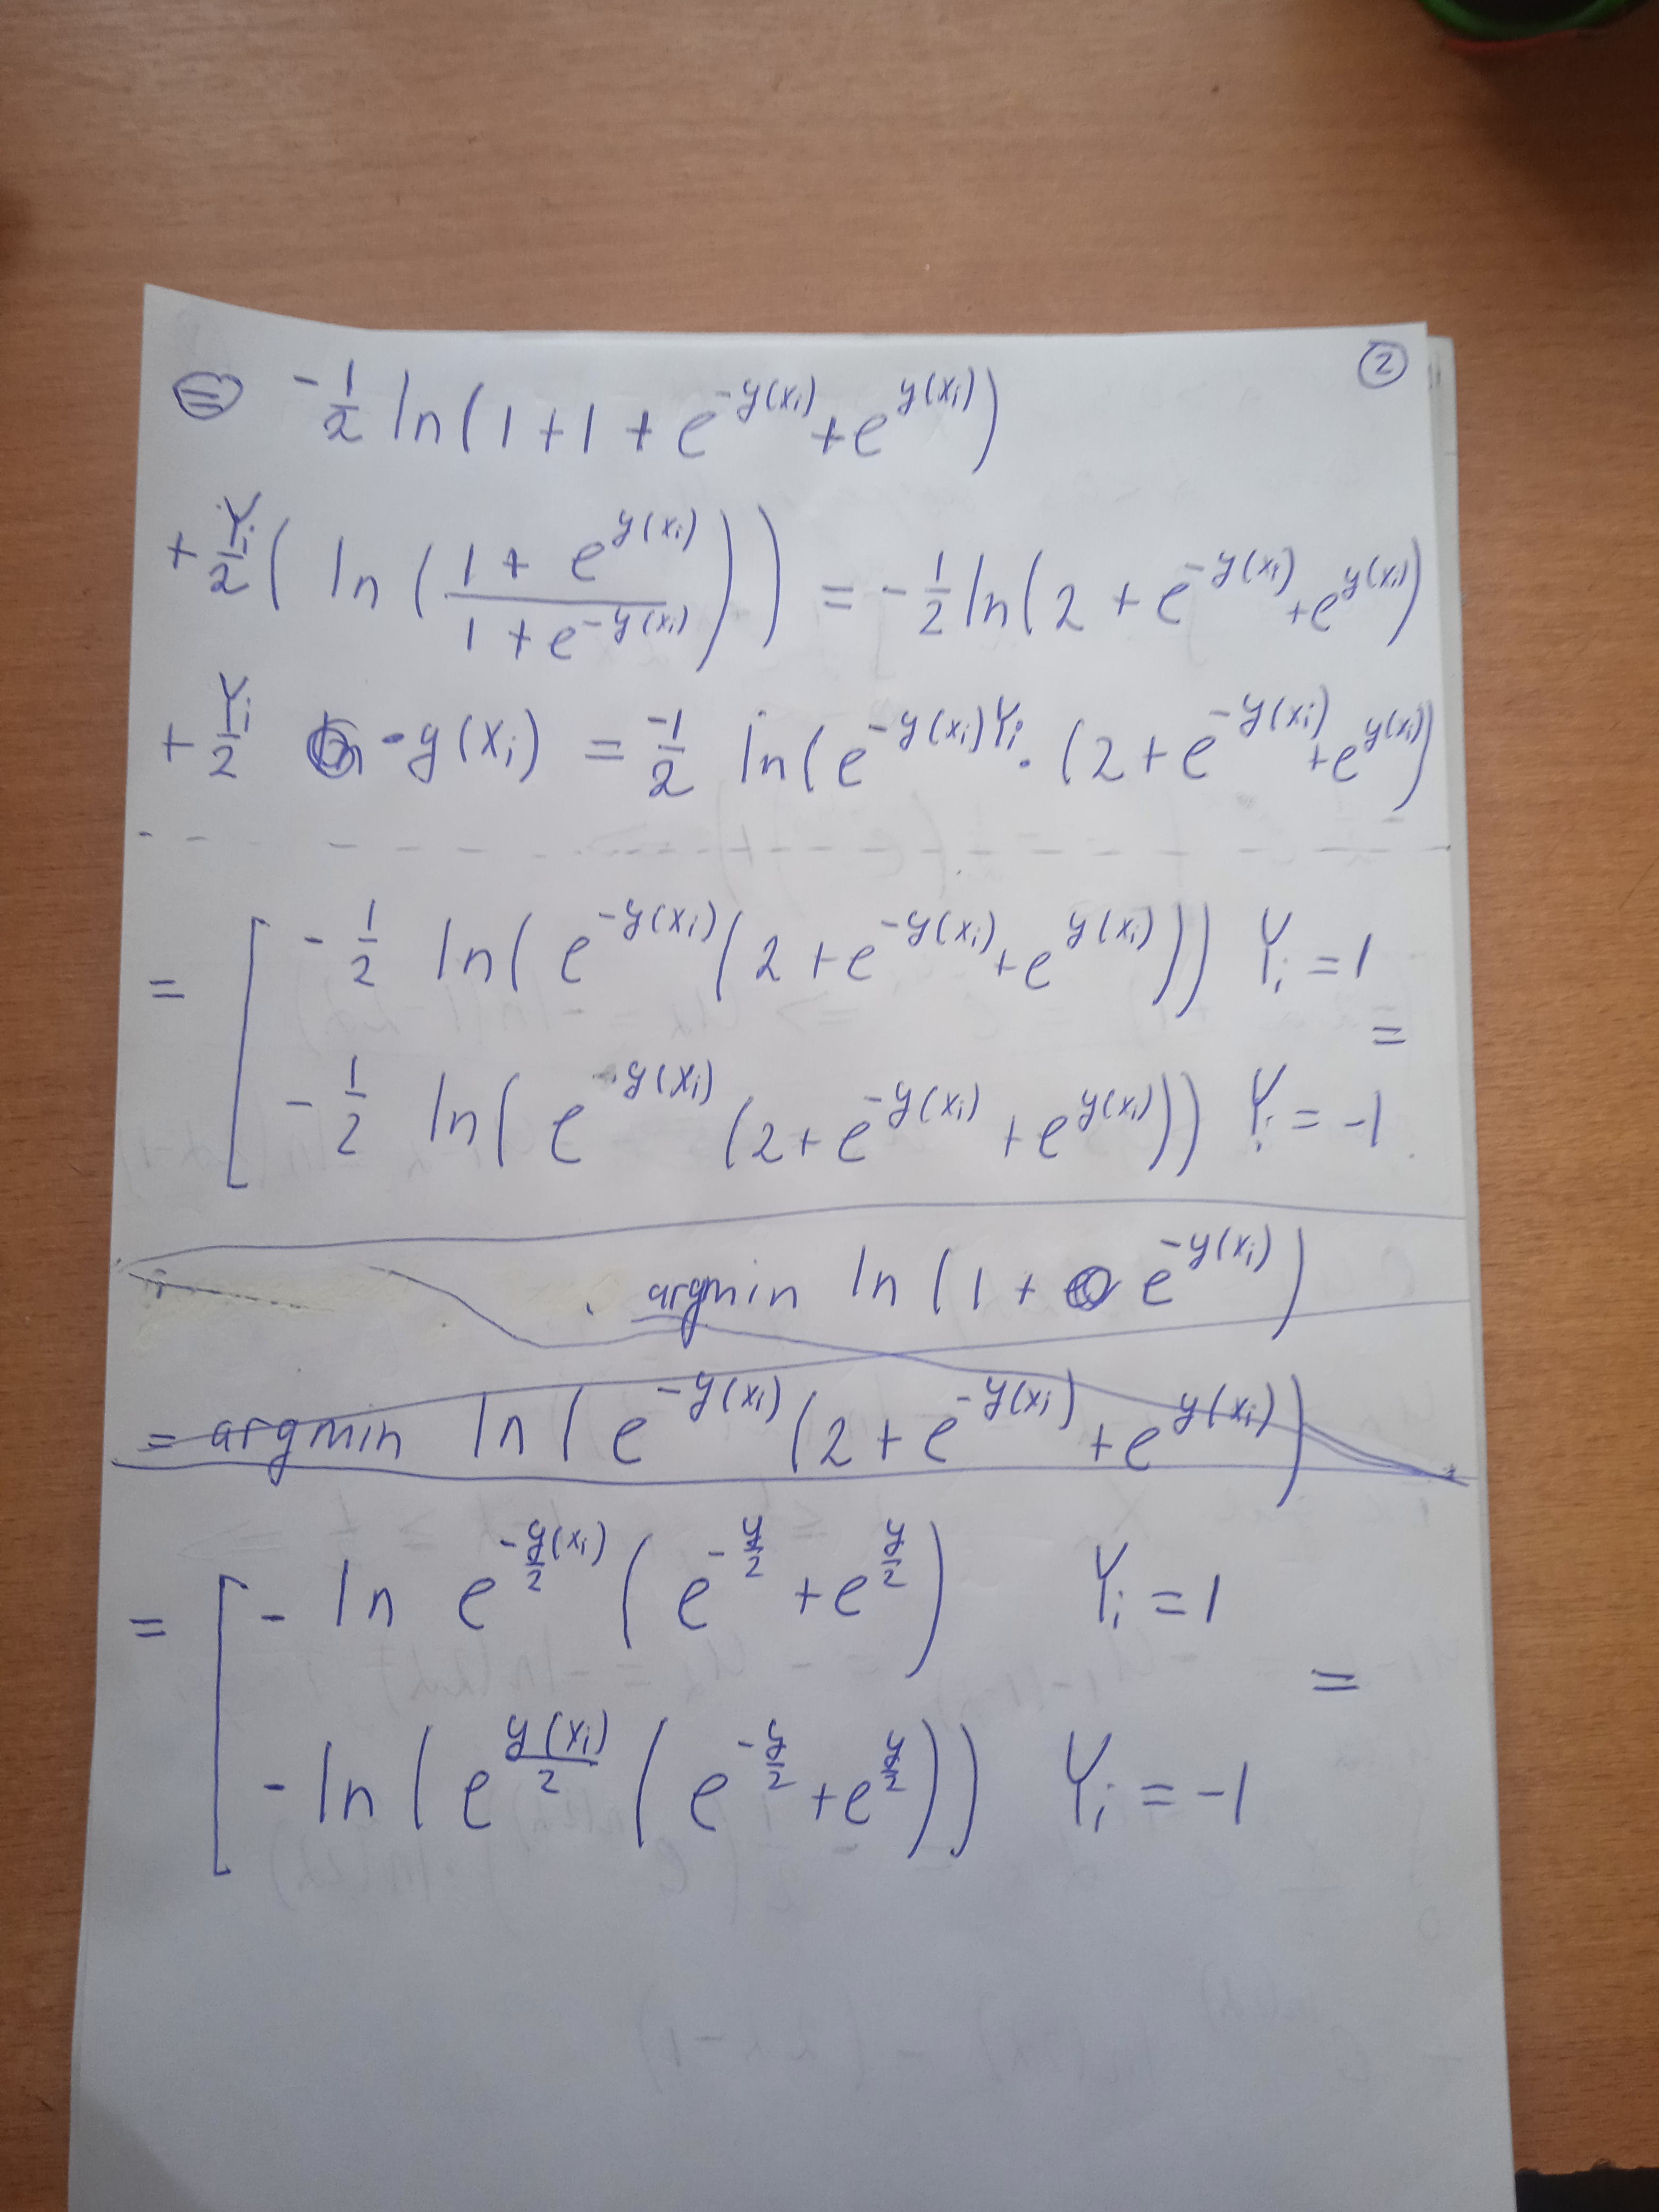 ②
⊜ -1/2 ln(1+1+e^{-y(x_i)}+e^{y(x_i)})
+Y_i/2 ( ln ( (1+e^{y(x_i)})/(1+e^{-y(x_i)}) ) ) = -1/2 ln(2+e^{-y(x_i)}+e^{y(x_i)})
+Y_i/2 · y(x_i) = -1/2 ln(e^{-y(x_i)Y_i} · (2+e^{-y(x_i)}+e^{y(x_i)})
= [ -1/2 ln( e^{-y(x_i)} (2+e^{-y(x_i)}+e^{y(x_i)})) Y_i = 1
=
-1/2 ln( e^{y(x_i)} (2+e^{-y(x_i)}+e^{y(x_i)})) Y_i = -1
argmin ln(1+e^{-y(x_i)})
= argmin ln( e^{-y(x_i)} (2+e^{-y(x_i)}+e^{y(x_i)})
= [ - ln e^{-y/2(x_i)} (e^{-y/2}+e^{y/2}) Y_i = 1
=
- ln( e^{y(x_i)/2} (e^{-y/2}+e^{y/2})) Y_i = -1